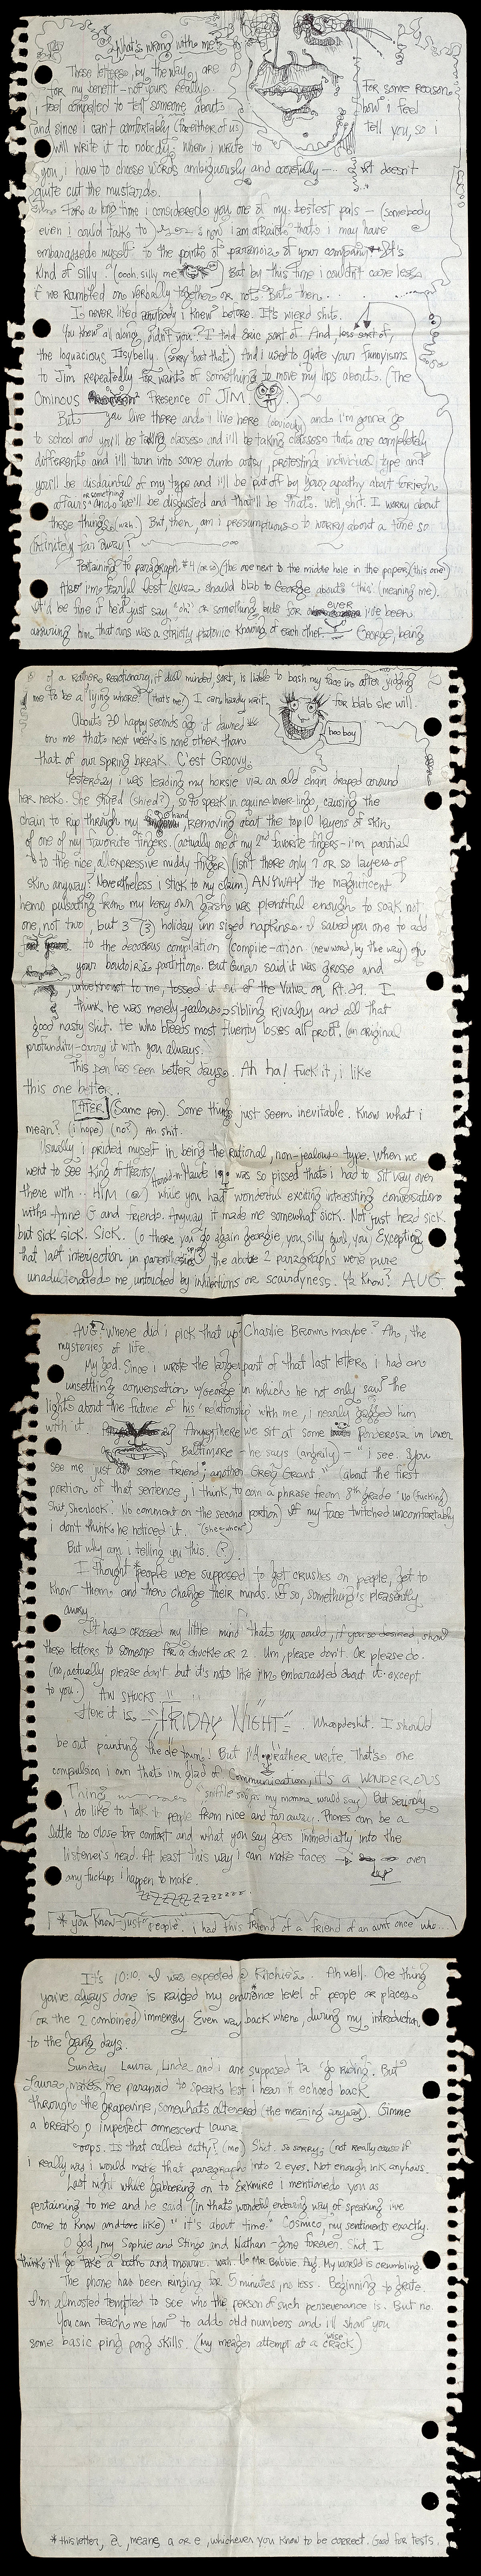 What's wrong with me?
These letters, by the way, are
for my benefit - not yours really. For some reason
i feel compelled to tell someone about how i feel
and since i can't comfortably (for either of us) tell you, so i
will write it to nobody. When i write to
you, i have to chose words ambiguously and carefully.... It doesn't
quite cut the mustard.
For a long time i considered you one of my bestest pals - (somebody
even i could talk to) now i am afraid that i may have
embarassed myself to the point of paranoia of your company. It's
kind of silly. (oooh, silly me) But by this time i couldn't care less
if we rambled on verbally together or not. But then....
I's never liked anybody i knew before. It's wierd shit.
You knew all along, didn't you? I told Eric sort of. And, less sort of,
the loquacious Itsybelly. (sorry 'bout that) And i used to quote your funnyisms
to Jim repeatedly for want of something to move my lips about. (The
Ominous Presence of JIM
But you live there and i live here (obviously) and i'm gonna go
to school and you'll be taking classes and i'll be taking classes that are completely
different and i'll turn into some dumb artsy, protesting individual type and
you'll be disdainful of my type and i'll be put off by your apathy about foreign
affairs or something and we'll be disgusted and that'll be that. Well shit. I worry about
these things (wah). But, then, am i presumptuous to worry about a time so
infinitely far away?
Pertaining to paragraph #4 (or so) (the one next to the middle hole in the paper) (this one)
Also i'm fearful lest Laura should blab to George about "this" (meaning me).
It'd be fine if he'd just say "oh" or something but for ever i've been
assuring him that ours was a strictly platonic knowing of each other. George, being
of a rather reactionary, if dull minded, sort, is liable to bash my face in after judging
me to be a lying whore. (that's me!) I can hardly wait for blab she will.
hoo boy
About 30 happy seconds ago it dawned
on me that next week is none other than
that of our spring break. C'est Groovy.
Yesterday i was leading my horsie via an old chain draped around
her neck. She shyed (shied?), so to speak in equine lover lingo, causing the
chain to rip through my hand, removing about the top 10 layers of skin
of one of my favorite fingers. (actually one of my 2nd favorite fingers - i'm partial
to the nice, all expressive middy finger) (isn't there only 7 or so layers of
skin anyway? Nevertheless i stick to my claim.) ANYWAY the magnificent
hemo pulsating from my very own gash was plentiful enough to soak not
one, not two but 3 (3) holiday inn sized napkins. I saved you one to add
to the decorous compilation (compile-ation) (new word, by the way) on
your boudoir's partitions. But Gunar said it was grosse and
unbeknownst to me, tossed it out of the Vulva on Rt. 29. I
think he was merely jealous, sibling rivalry and all that
good nasty shit. He who bleeds most fluently loses all proof. (an original
profundity - carry it with you always.
This pen has seen better days. Ah ha! Fuck it, i like
this one better.
LATER (Same pen). Some things just seem inevitable. Know what i
mean? (i hope) (no?) Ah shit.
Usually i prided myself in being the rational, non-jealous type. When we
went to see King of Hearts/Harold-n-Maude i was so pissed that i had to sit way over
there with.. HIM (@) while you had wonderful exciting interesting conversation
with Anne G and friends. Anyway it made me somewhat sick. Not just head sick
but sick sick. Sick. (o there you go again georgie you silly gurl you. Excepting
that last interjection in parentheses, the above 2 paragraphs were pure
unadulterated me, untouched by inhibitions or scaredyness. Ya know? AUG.
AUG? Where did i pick that up? Charlie Brown maybe? Ah, the
mysteries of life.
My god. Since i wrote the larger part of that last letter, i had an
unsettling conversation w/George in which he not only saw the
light about the future of his 'relationship' with me, i nearly gagged him
with it. Anyway there we sit at some Ponderosa in lower
Baltimore - he says (angrily) - "i see. You
see me just as some friend; another Greg Grant." (about the first
portion of that sentence, i think, to coin a phrase from 8th grade "No (fucking)
Shit, Sherlock! No comment on the second portion) If my face twitched uncomfortably
i don't think he noticed it. (shee-whew)
But why am i telling you this. (?)
I thought *people were supposed to get crushes on people, get to
know them, and then change their minds. If so, something's pleasently
awry.
It had crossed my little mind that you could, if you so desired, show
these letters to someone for a chuckle or 2. Um, please don't. Or please do.
(no, actually please don't but it's not like i'm embarassed about it - except
to you.) AW SHUCKS
Here it is FRIDAY NIGHT. Whoopdeshit. I should
be out painting the ole town. But i'd rather write. That's one
compulsion i own that i'm glad of. Communication, it's a WONDEROUS
Thing (as my momma would say.) But seriously
i do like to talk to people from nice and far away. Phones can be a
little too close for comfort and what you say goes immediately into the
listener's head. At least this way i can make faces over
any fuckups i happen to make.
ZZZZZZZZZZZ
* you know - just "people". i had this friend of a friend of an aunt once who....
It's 10:10. I was expected @ Ritchie's. Ah well. One thing
you've always done is raised my endurance level of people or places
(or the 2 combined) immensly. Even way back when, during my introduction
to the gang days.
Sunday Laura, Linda and i are supposed ta 'go riding'. But
Laura makes me paranoid to speak lest i hear it echoed back
through the grapevine, somewhat altered (the meaning anyway). Gimme
a break, o imperfect omnescent Laura.
oops. Is that called catty? (me) Shit. so sorry. (not really cause if
i really way i would make that paragraph into 2 eyes. Not enough ink, anyhow.
Last night while gabbering on to Erkmire i mentioned you as
pertaining to me and he said (in that wonderful endearing way of speaking i've
come to know and love like) "it's about time." Cosmico, my sentiments exactly.
O god, my Sophie and Stingo and Nathan - gone forever. Shit I
think i'll go take a bath and mourn. wah. No Mr. Bobbie. Aug. My world is crumbling.
The phone has been ringing for 5 minutes, no less. Beginning to grate.
I'm almosted tempted to see who the person of such perseverance is. But no.
You can teach me how to add odd numbers and i'll show you
some basic ping pong skills. (My meager attempt at a wise crack)
* this letter, a, means a or e, whichever you know to be correct. Good for tests.